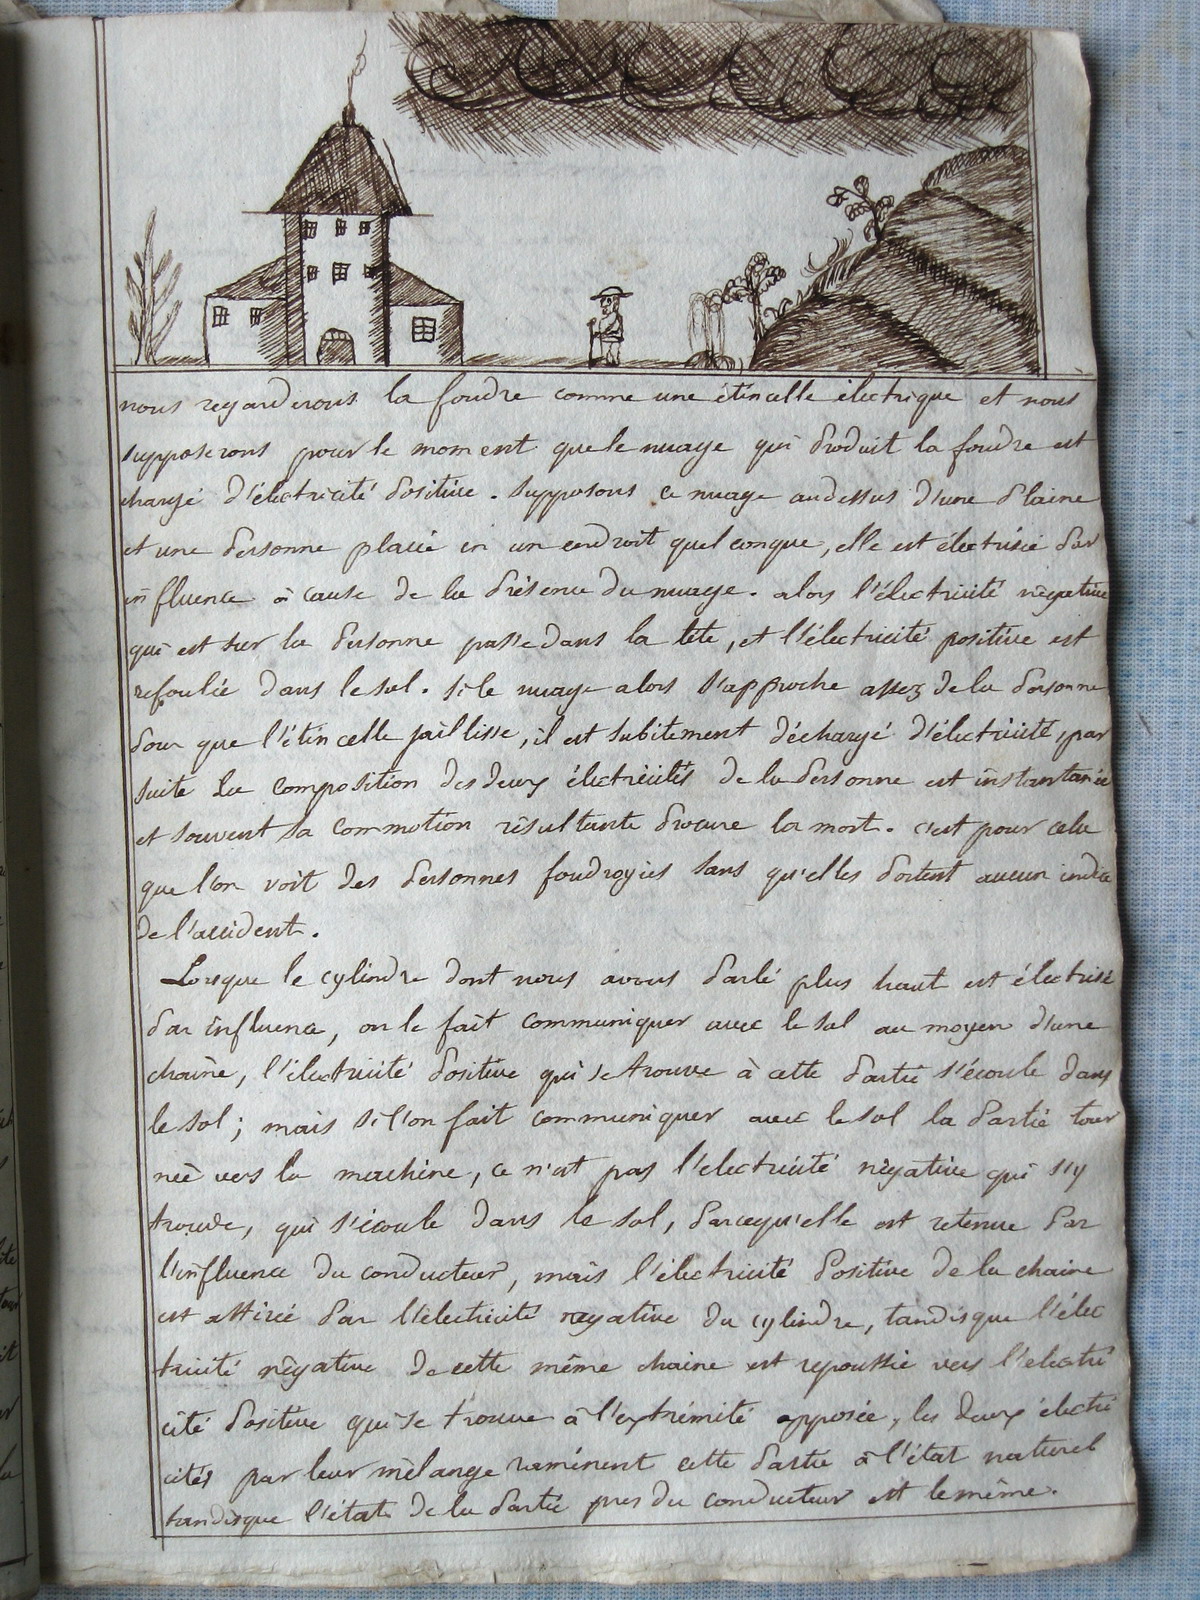 nous regarderons la foudre comme une étincelle électrique et nous
supposerons pour le moment que le nuage qui produit la foudre est
chargé d'électricité positive. Supposons ce nuage audessus d'une plaine
et une personne placée en un endroit quelconque, elle est électrisée par
influence à cause de la présence du nuage. alors l'électricité négative
qui est sur la personne passe dans la tête, et l'électricité positive est
refoulée dans le sol. Si le nuage alors s'approche assez de la personne
pour que l'étincelle jaillisse, il est subitement déchargé d'électricité, par
suite la composition des deux électricités de la personne est instantanée
et souvent sa commotion résultante procure la mort. c'est pour cela
que l'on voit des personnes foudroyées sans qu'elles portent aucun indice
de l'accident.
Lorsque le cylindre dont nous avons parlé plus haut est électrisé
par influence, on le fait communiquer avec le sol au moyen d'une
chaine, l'électricité positive qui se trouve à cette partie s'écoule dans
le sol; mais si l'on fait communiquer avec le sol la partie tour
née vers la machine, ce n'est pas l'electricité négative qui s'y
trouve, qui s'écoule dans le sol, parcequ'elle est retenue par
l'influence du conducteur, mais l'électricité positive de la chaine
est attirée par l'électricité négative du cylindre, tandisque l'élec
tricité négative de cette même chaine est repoussée vers l'electri
cité positive qui se trouve à l'extrémité opposée, les deux électri
cités par leur mélange raménent cette partie à l'état naturel
tandisque l'état de la partie pres du conducteur est le même.